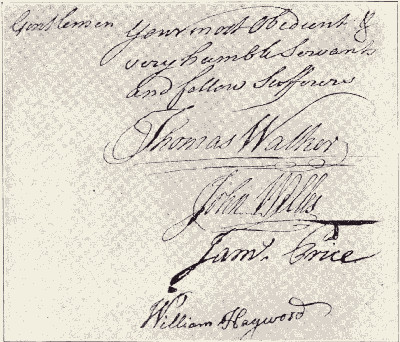 Gentlemen Your most Obedient &
very humble Servants
and fellow Sufferers
Thomas Walker
John Wllis
Jamˢ. Price
William Haywood